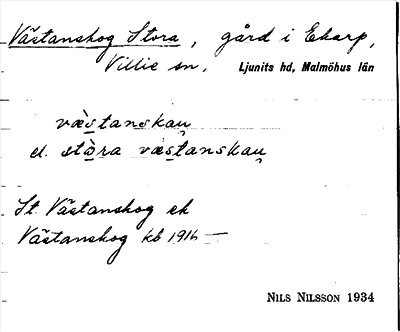 Västanskog Stora, gård i Ekarp,
Villie sn. Ljunits hd, Malmöhus län
væ̀stanskau̯
el. stòra væstanskau̯
St. Västanskog ek
Västanskog kb 1916 —
NILS NILSSON 1934